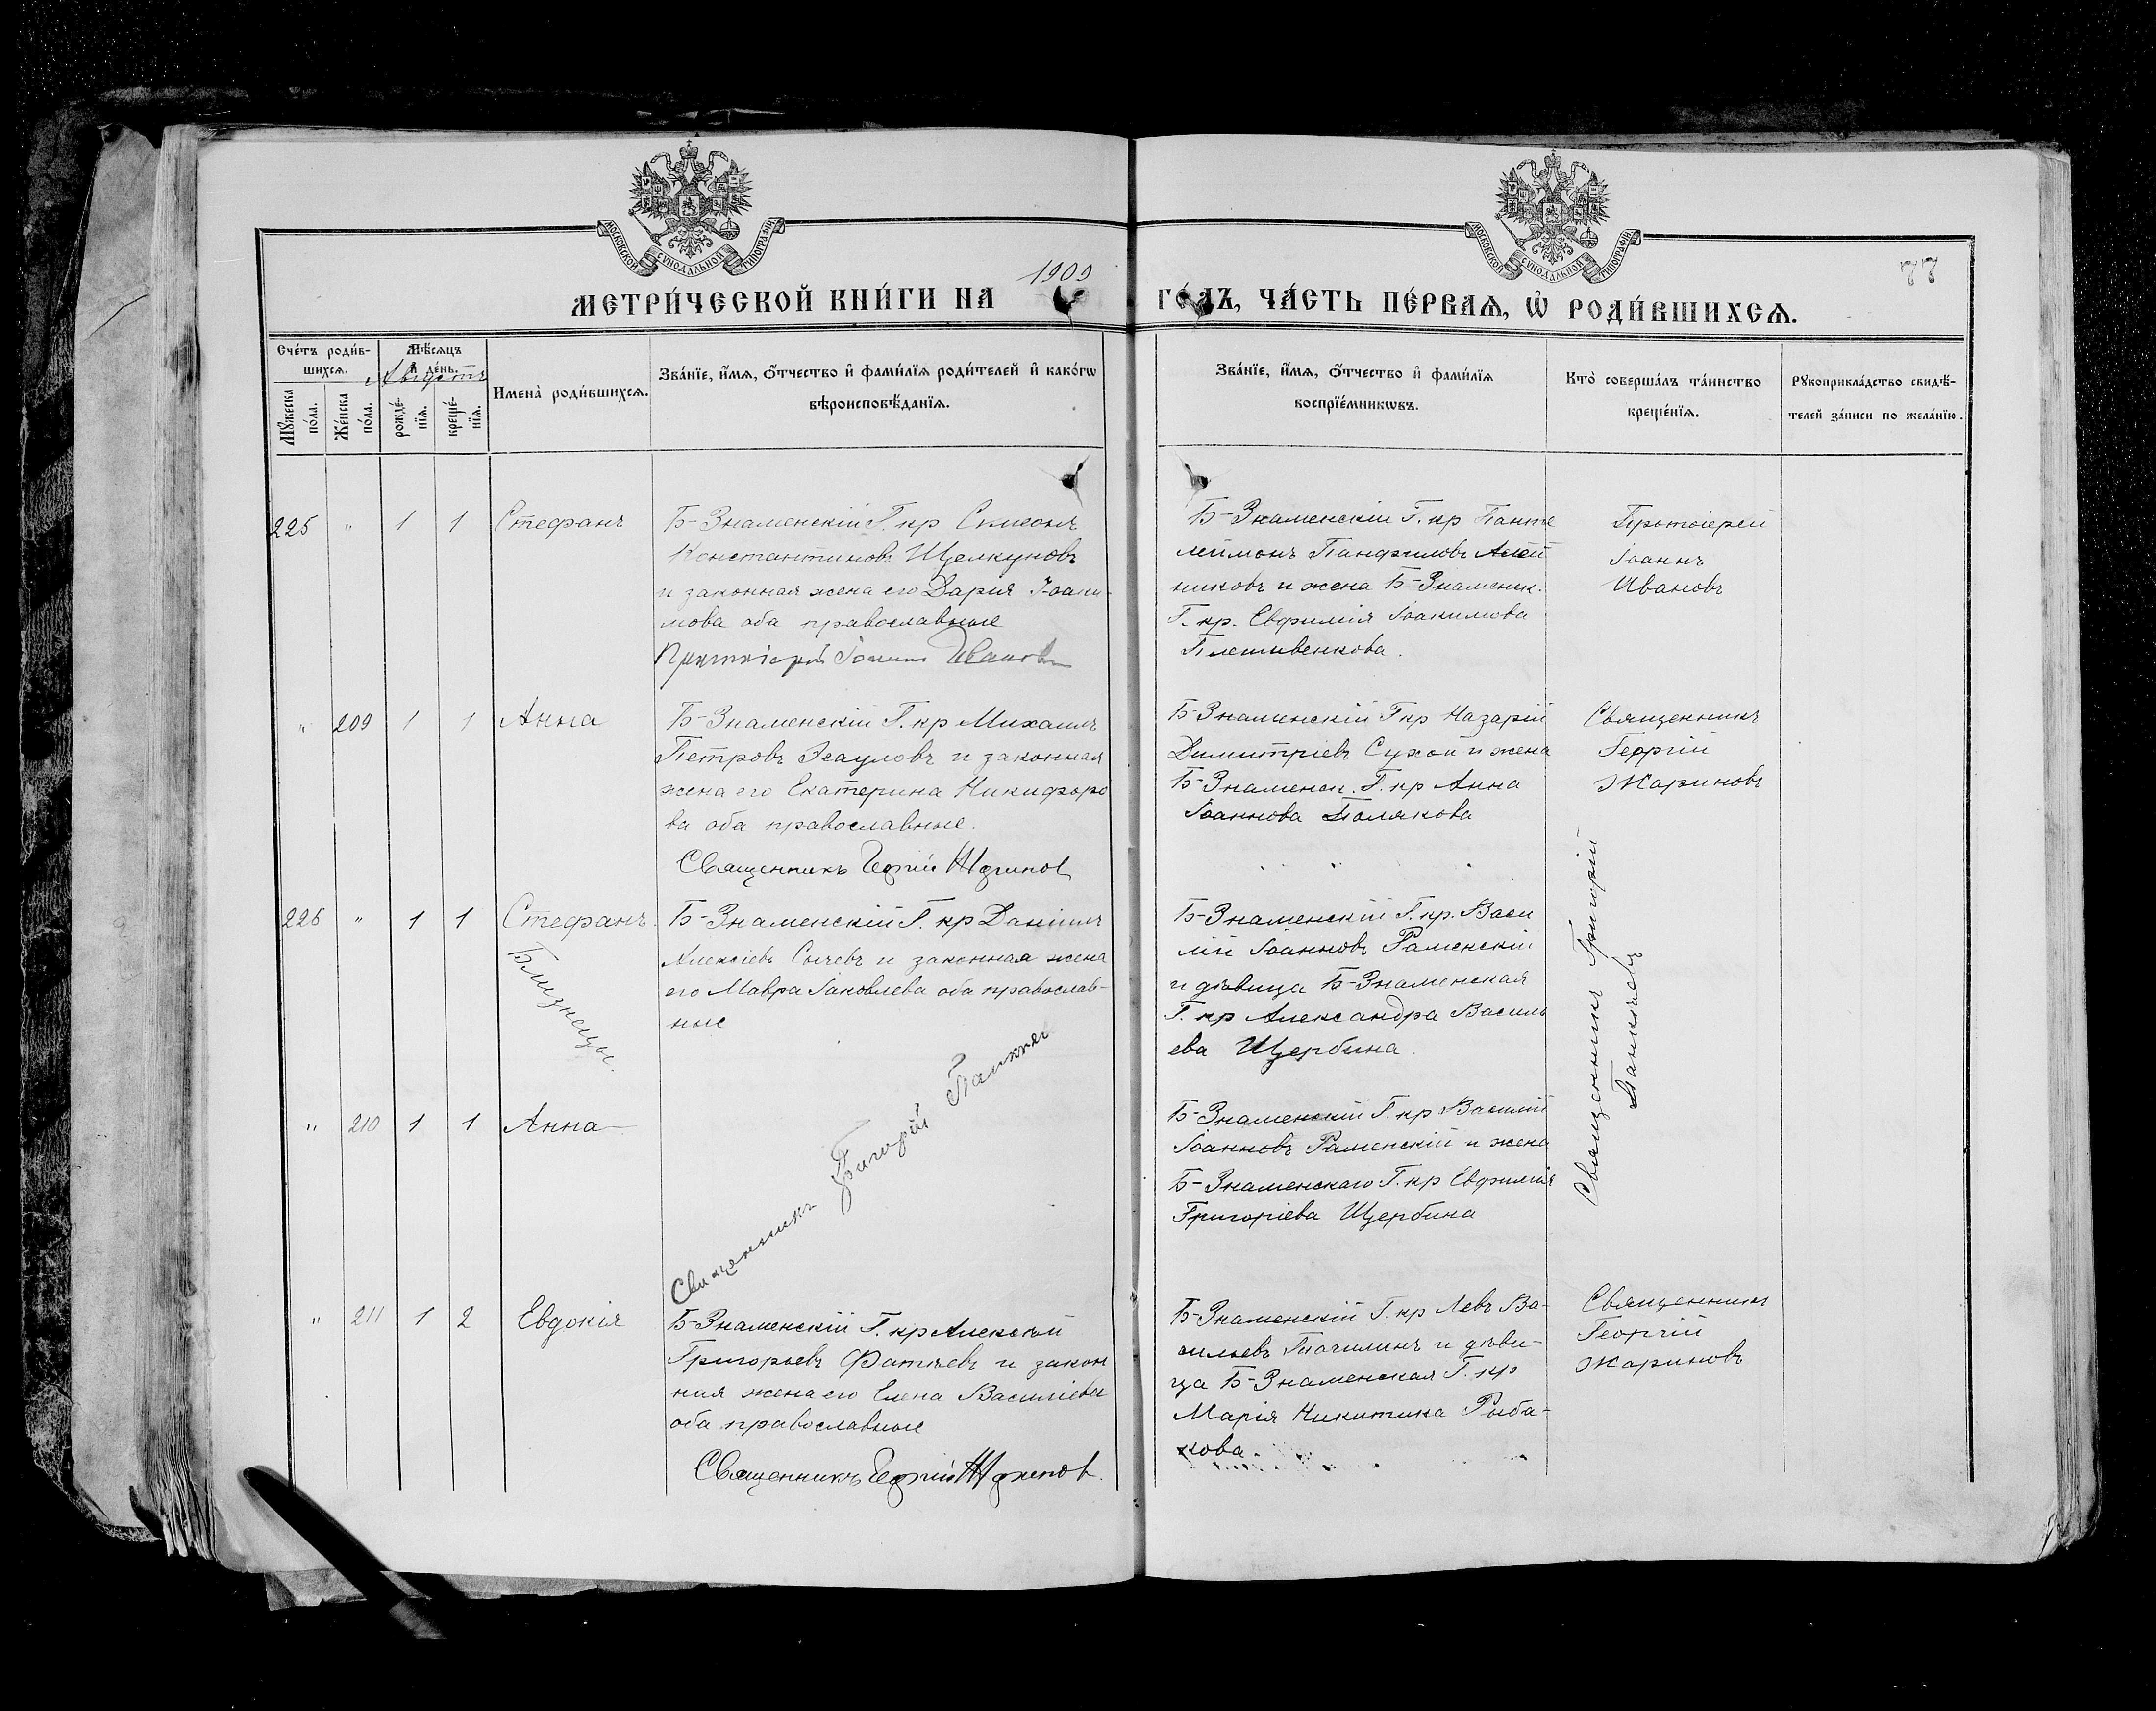 МОСКОВСКОЙ СѴНОДАЛЬНОЙ ТИПОГРАФІИ
МОСКОВСКОЙ СѴНОДАЛЬНОЙ ТИПОГРАФІИ
1909
77
МЕТРИ́ЧЕСКОЙ КНИ́ГИ НА ГО́ДЪ, ЧА́СТЬ ПЕ́РВАѦ, Ѽ РОДИ́ВШИХСѦ.
Сче́тъ роди́в-
шихсѧ.
Мꙋ́жеска по́ла.
Же́нска по́ла.
Мѣ́сѧцъ и҆ де́нь.
Августъ
рожде́-нїѧ.
креще́-нїѧ.
Имена̀ роди́вшихсѧ.
Зва́нїе, и҆́мѧ, о҆́тчество и҆ фами́лїѧ роди́телей и҆ како́гѡ
вѣроисповѣ́данїѧ.
Зва́нїе, и҆́мѧ, о҆́тчество и҆ фами́лїѧ
воспрїе́мникѡвъ.
Кто̀ соверша́лъ та́инство
креще́нїѧ.
Рꙋкоприкла́дство свидѣ́-
телей за́писи по жела́нїю.
225 " 1 1 Стефанъ
Б-Знаменскій Г. кр Симеонъ
Константиновъ Щелкуновъ
и законная жена его Дарія Іоаки-
мова оба православные
Протоіерей Іоаннъ Ивановъ
Б-Знаменскій Г. кр Панте
леймонъ Панфиловъ Алей
никовъ и жена Б-Знаменск.
Г. кр. Евфимія Іоакимова
Плешивенкова.
Протоіерей
Іоаннъ
Ивановъ
" 209 1 1 Анна
Б-Знаменскій Г. кр Михаилъ
Петровъ Эсауловъ и законная
жена его Екатерина Никифоро
ва оба православные.
Священникъ Георгій Жариновъ
Б-Знаменскій Г кр Назарій
Димитріевъ Сухой и жена
Б-Знаменск. Г. кр Анна
Іоаннова Полякова
Священникъ
Георгій
Жариновъ
226 " 1 1 Стефанъ.
Близнецы.
Б-Знаменскій Г. кр Даніилъ
Алексіевъ Сычевъ и законная жена
его Мавра Іаковлева оба православ-
ные
Священникъ Григорій
Б-Знаменскій Г. кр. Васи
лій Іоанновъ Раменскій
и дѣвица Б-Знаменская
Г. кр Александра Василь
ева Щербина.
Священникъ Григорій
" 210 1 1 Анна
Б-Знаменскій Г. кр Василій
Іоанновъ Раменскій и жена
Б-Знаменскаго Г. кр Евфимія
Григоріева Щербина
" 211 1 2 Евдокія
Б-Знаменскій Г. кр Алексѣй
Григорьевъ Фатѣевъ и закон
ная жена его Елена Василіева
оба православные
Священникъ Георгій Жариновъ.
Б-Знаменскій Г. кр Левъ Ва-
сильевъ Точилинъ и дѣви-
ца Б-Знаменская Г. кр
Марія Никитина Рыба-
кова.
Священникъ
Георгій
Жариновъ